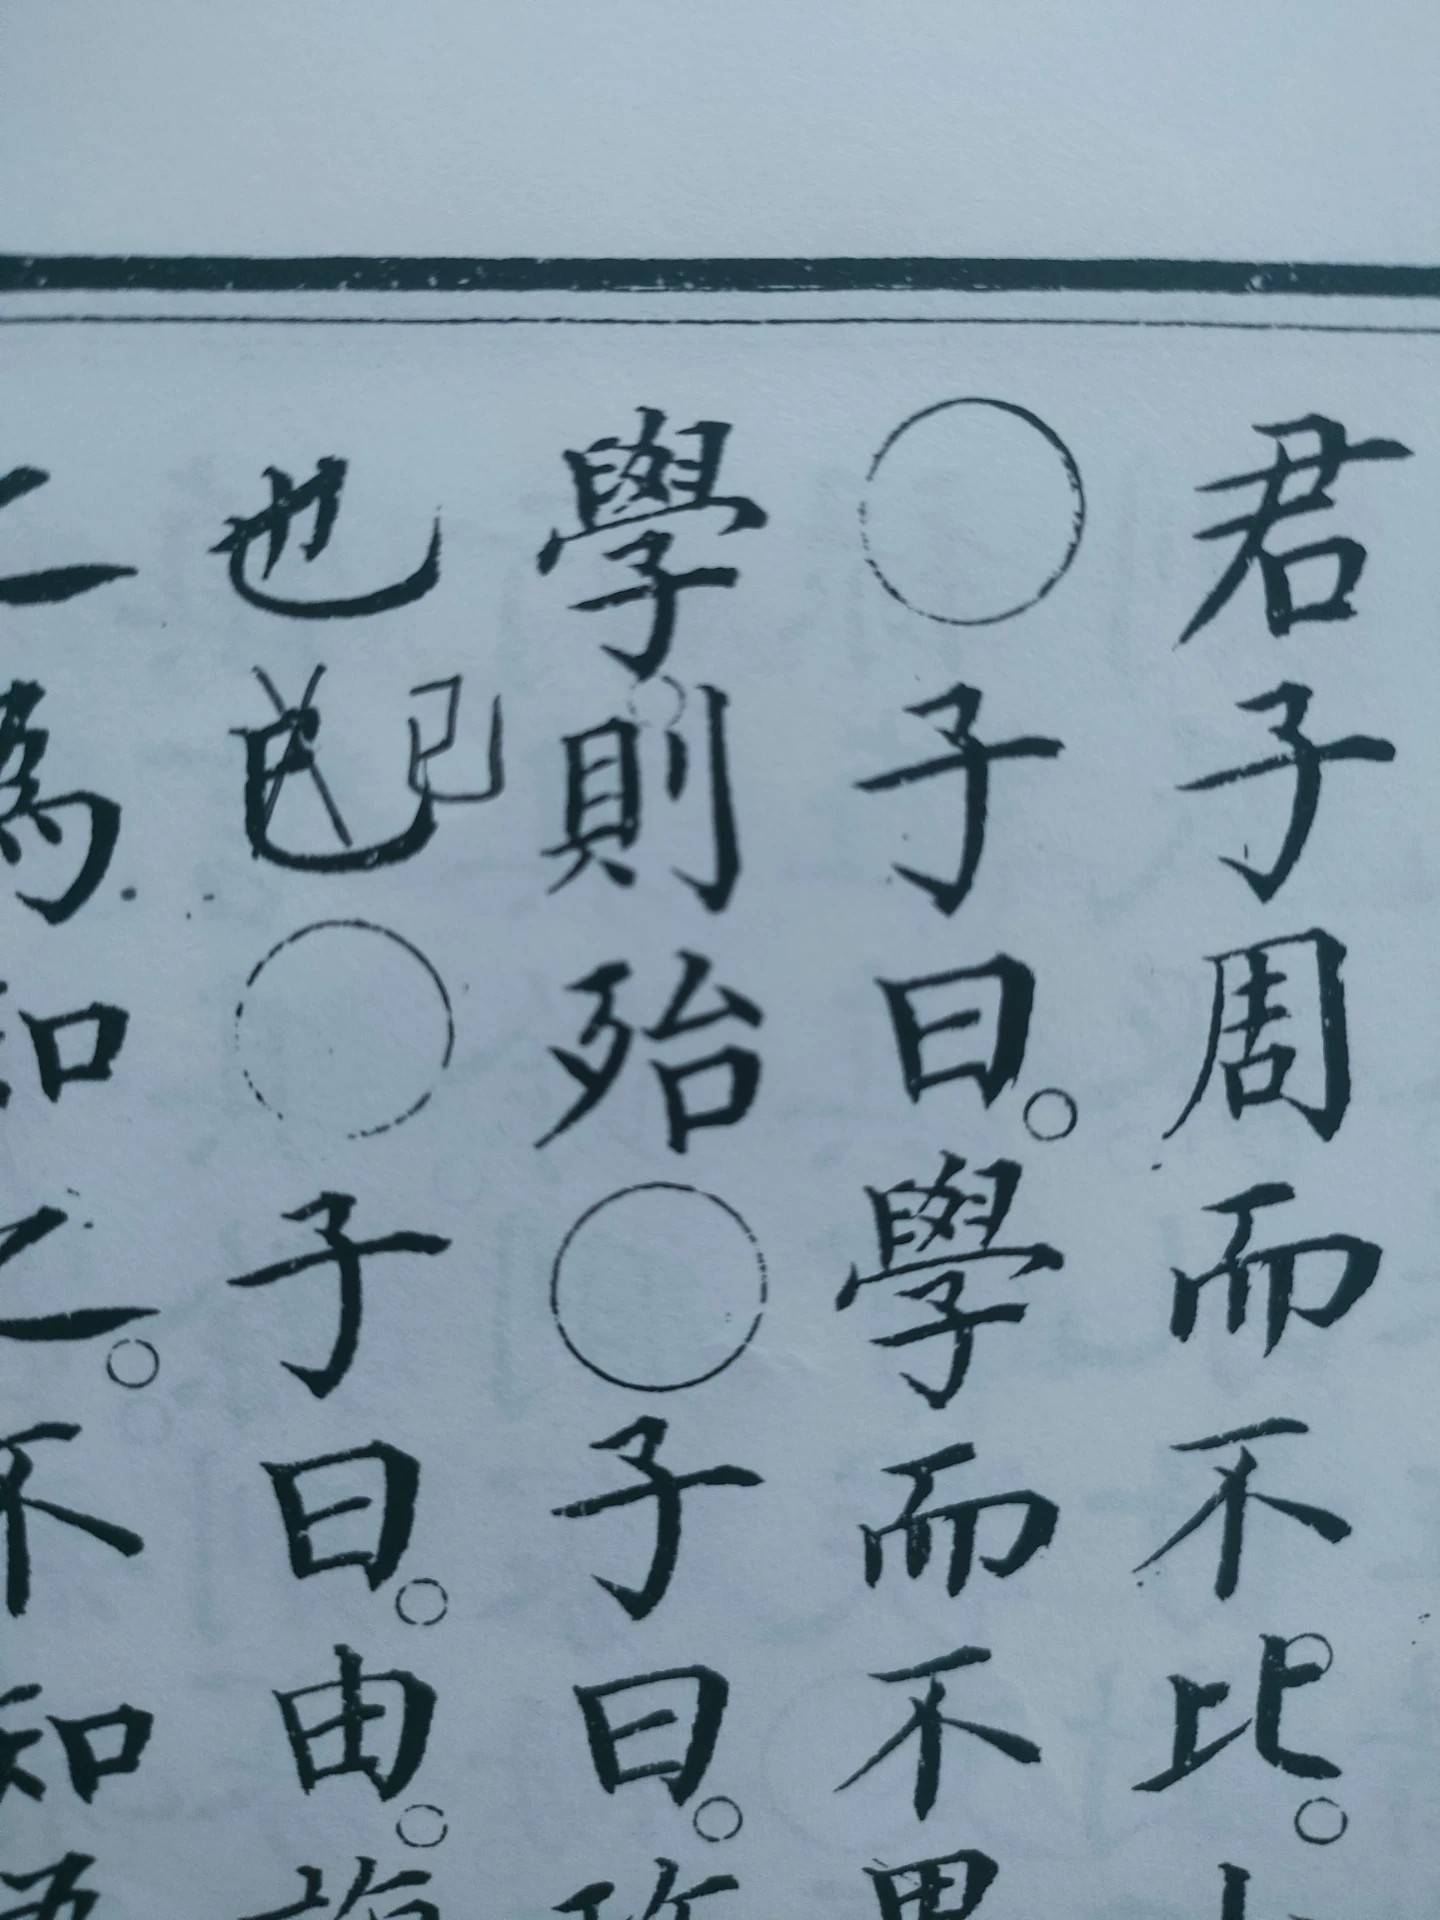 君子周而不比。
○子曰。學而不思
學則殆○子曰。攻
也已已○子曰。由。誨
之為知之。不知為